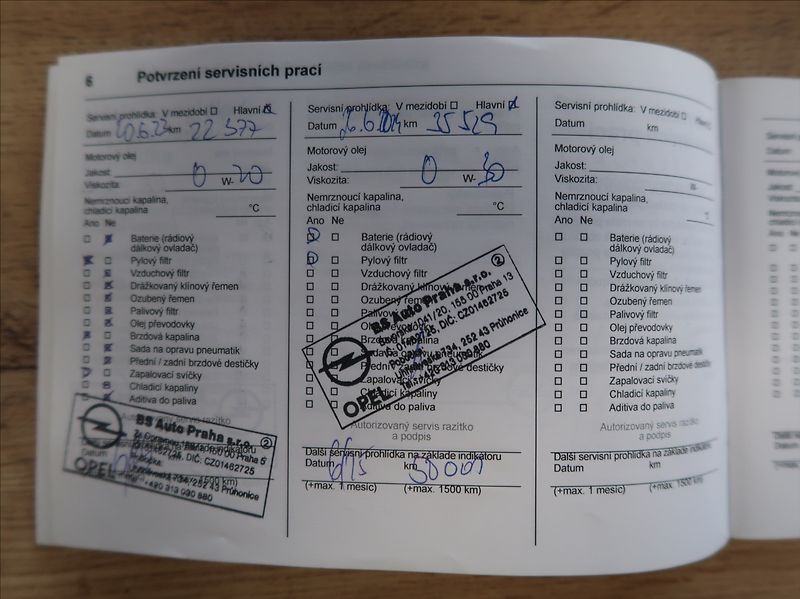 6 Potvrzení servisních prací
Servisní prohlídka: V mezidobí Hlavní
Datum 20.6.23 km 22 577
Motorový olej
Jakost:
Viskozita: 0 W- 20
Nemrznoucí kapalina,
chladicí kapalina °C
Ano Ne
Baterie (rádiový
dálkový ovladač)
Pylový filtr
Vzduchový filtr
Drážkovaný klínový řemen
Ozubený řemen
Palivový filtr
Olej převodovky
Brzdová kapalina
Sada na opravu pneumatik
Přední / zadní brzdové destičky
Zapalovací svíčky
Chladicí kapaliny
Aditiva do paliva
Autorizovaný servis razítko
BS Auto Praha s.r.o. 2
DIČ: CZ01462725
OPEL
252 43 Průhonice
+420 313 030 880
1500 km)
Servisní prohlídka: V mezidobí Hlavní
Datum 26.6.2024 km 35 529
Motorový olej
Jakost:
Viskozita: 0 W- 30
Nemrznoucí kapalina,
chladicí kapalina °C
Ano Ne
Baterie (rádiový
dálkový ovladač)
Pylový filtr
Vzduchový filtr
Drážkovaný klínový řemen
Ozubený řemen
Palivový filtr
Olej převodovky
Brzdová kapalina
Sada na opravu pneumatik
Přední / zadní
Zapalovací
Chladicí kapaliny
Aditiva do paliva
BS Auto Praha s.r.o. 2
041/20, 155 00 Praha 13
DIČ: CZ01462725
734, 252 43 Průhonice
OPEL
Autorizovaný servis razítko
a podpis
Další servisní prohlídka na základě indikátoru
Datum km
(+max. 1 měsíc) (+max. 1500 km)
Servisní prohlídka: V mezidobí Hlavní
Datum km
Motorový olej
Jakost:
Viskozita: W-
Nemrznoucí kapalina,
chladicí kapalina °C
Ano Ne
Baterie (rádiový
dálkový ovladač)
Pylový filtr
Vzduchový filtr
Drážkovaný klínový řemen
Ozubený řemen
Palivový filtr
Olej převodovky
Brzdová kapalina
Sada na opravu pneumatik
Přední / zadní brzdové destičky
Zapalovací svíčky
Chladicí kapaliny
Aditiva do paliva
Autorizovaný servis razítko
a podpis
Další servisní prohlídka na základě indikátoru
Datum km
(+max. 1 měsíc) (+max. 1500 km)